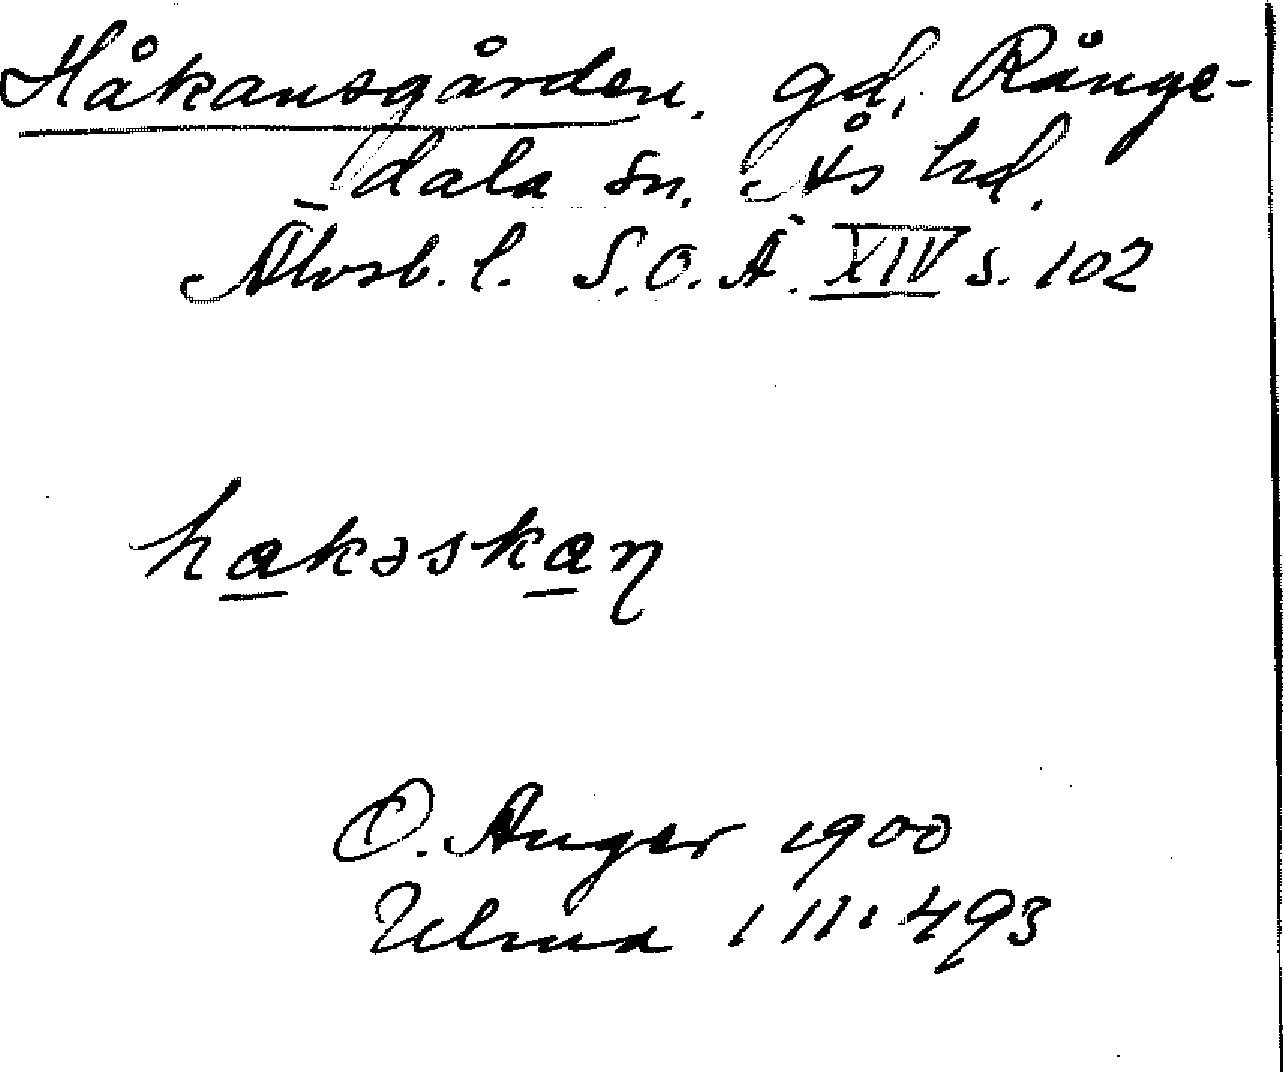 Håkansgården. gd, Rånge-
dala sn. Ås hd.
Älvsb. l. S.O.Ä. XIV s. 102
hakəskaɳ
O. Auger 1900
Ulma 111:493